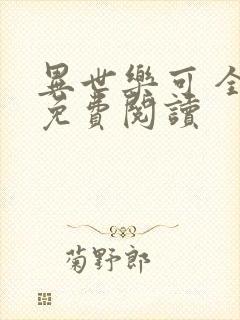 異世樂可 全
免費閱讀
菊野郎